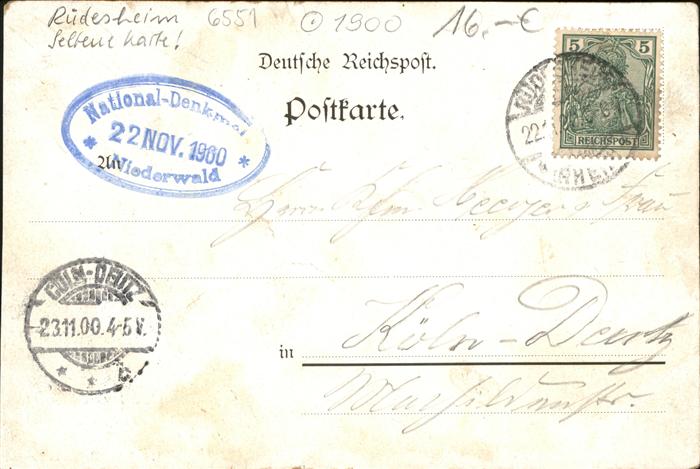 Rüdesheim 6551 ⊙1900 16.-€
Seltene Karte!
Deutsche Reichspost.
Postkarte.
5 5
REICHSPOST
RÜDESHEIM
22.11
RHEIN
National-Denkmal
* 22 NOV. 1900 *
Niederwald
An
Herrn
Frau
CÖLN-DEUTZ
23.11.00.4-5V.
* *
in Köln-Deutz
Mathildenstr.